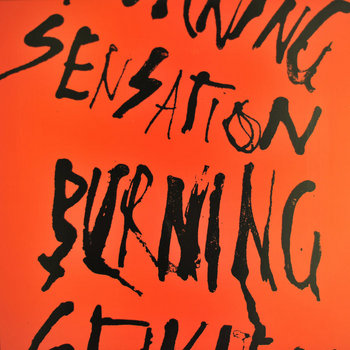 BURNING
SENSATION
BURNING